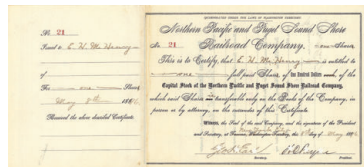 No. 21
Issued to E. W. McHenry
of
For one Share
May 8th 1886
Received the above described Certificate.
INCORPORATED UNDER THE LAWS OF WASHINGTON TERRITORY
Northern Pacific and Puget Sound Shore
No. 21 Railroad Company. one Share
This is to Certify, that E. W. McHenry is entitled to
one full paid Share, of One Hundred Dollars each, of the
Capital Stock of the Northern Pacific and Puget Sound Shore Railroad Company,
which said Share is transferable only on the Books of the Company, in
person or by attorney, on the surrender of this Certificate.
Witness, the Seal of the said Company, and the signatures of the President
and Secretary, at Tacoma, Washington Territory, this 8th day of May 1886
Secretary. President.